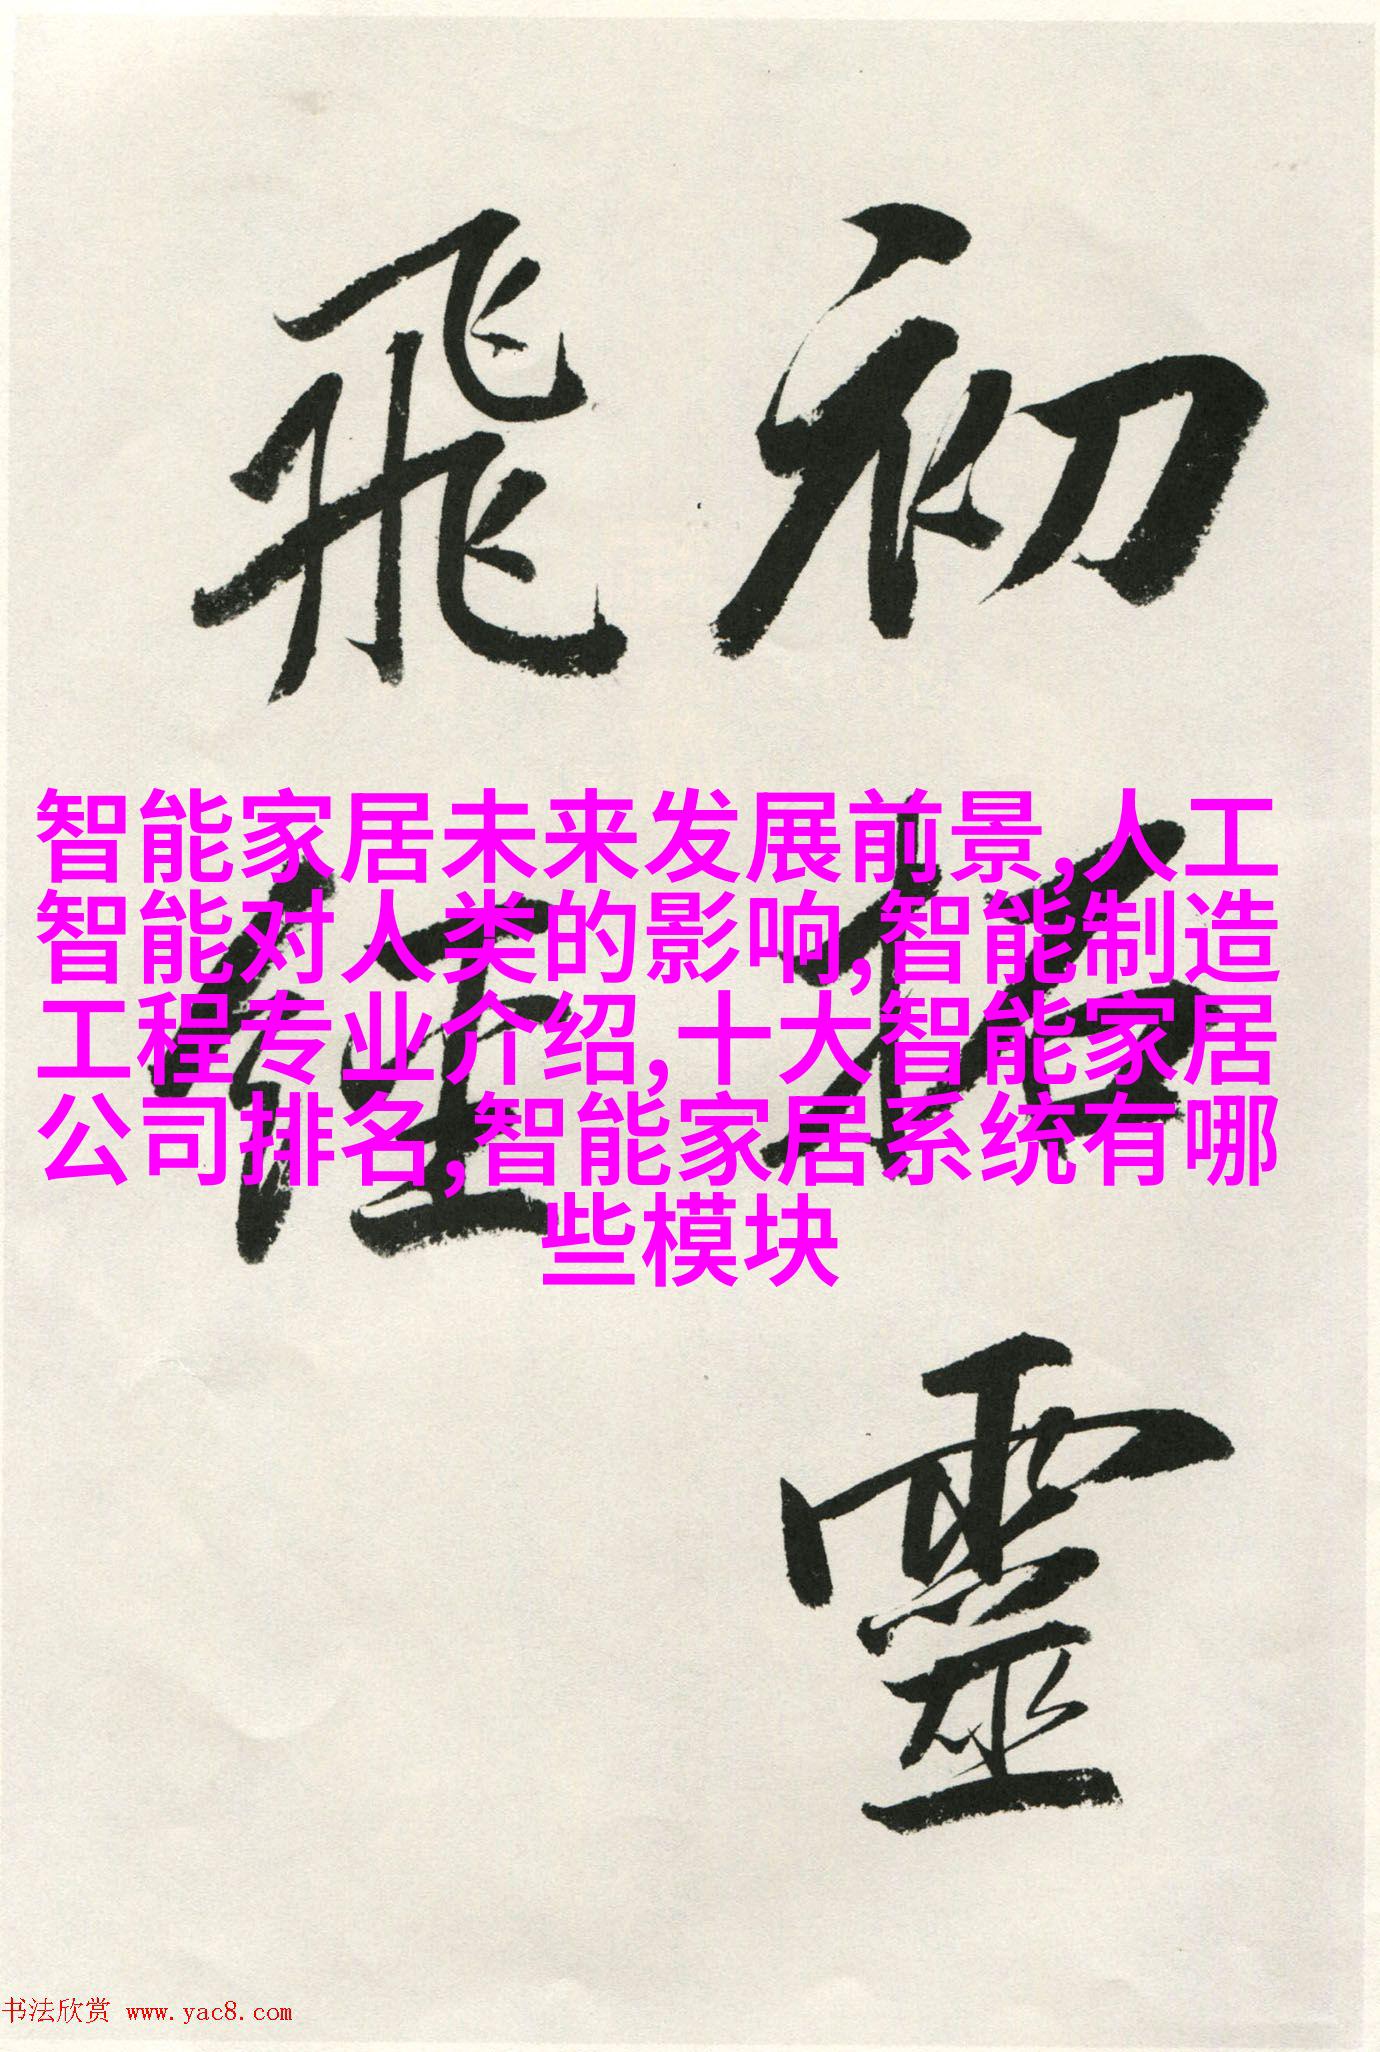 初拓靈
飛經
智能家居未来发展前景,人工
智能对人类的影响,智能制造
工程专业介绍,十大智能家居
公司排名,智能家居系统有哪
些模块
书法欣赏 www.yac8.com